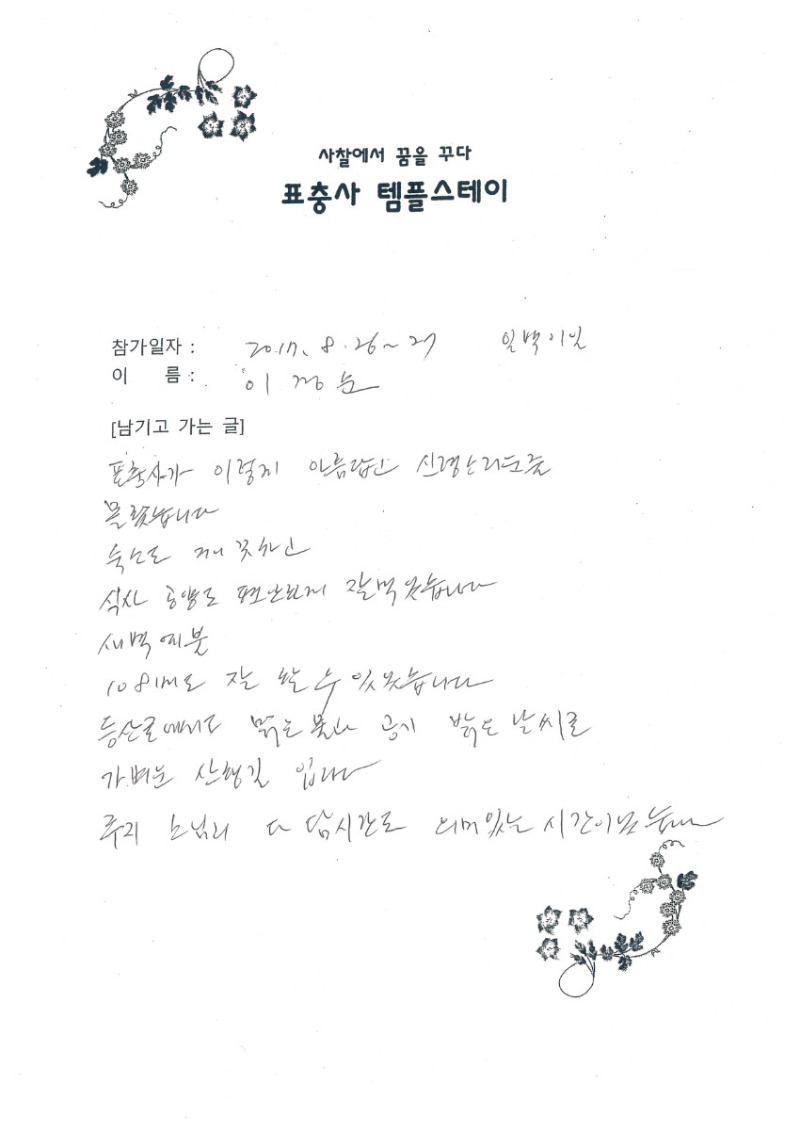 사찰에서 꿈을 꾸다
표충사 템플스테이
참가일자 : 2017. 8. 26~27 일박이일
이 름 : 이정순
[남기고 가는 글]
표충사가 이렇게 아름답고
몰랐습니다
숙소도 깨끗하고
식사 공양도 편안하게 잘먹었습니다
새벽예불
108배도 잘 할 수 있었습니다
맑은 물과 공기 밝은 날씨로
가벼운 산행길 입니다
주지 스님과 다담시간도 의미있는 시간이였습니다